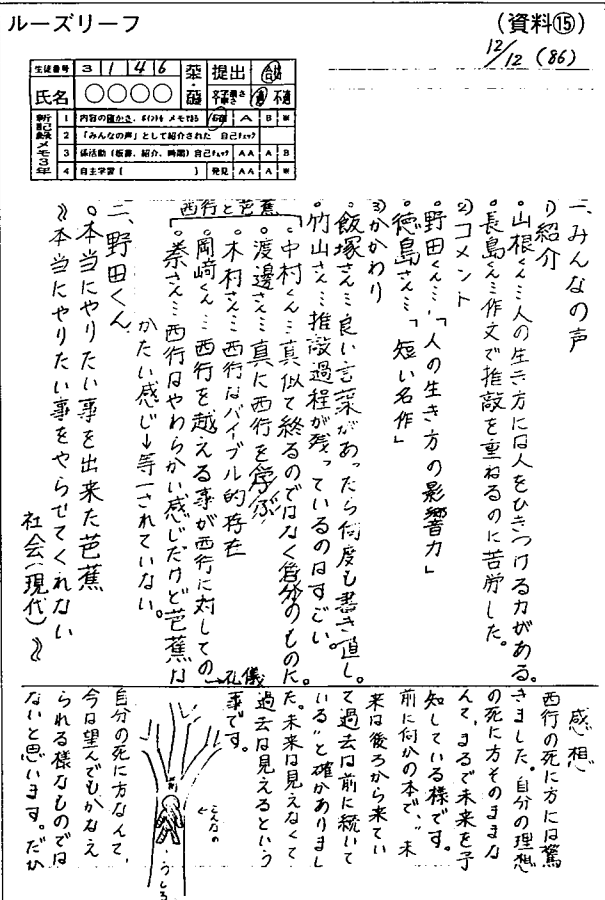 ルーズリーフ
(資料⑮)
12/12 (86)
生徒番号 3 1 1 4 6
氏名 ○○○○
提出
新記録メモ3年
1 内容の確かさ、ポイントを メモできる A B ※
2 「みんなの声」として紹介された 自己チェック
3 係活動(板書、紹介、時間)自己チェック AA A B
4 自主学習( ) 発見 AA A ※
一、みんなの声
1)紹介
○山根くん…人の生き方には人をひきつける力がある。
○長島くん…作文で推敲を重ねるのに苦労した。
2)コメント
○野田くん…「人の生き方の影響力」
○徳島さん…「短い名作」
3)かかわり
○飯塚さん…良い言葉があったら何度も書き直し。
○竹山さん…推敲過程が残っているのはすごい。
西行と芭蕉
○中村くん…真似で終るのではなく自分のものに。
○渡邊さん…真に西行を学ぶ
○木村さん…西行はバイブル的存在
○岡崎くん…西行を越える事が西行に対しての
→礼儀
○秦さん…西行はやわらかい感じだけど芭蕉は
かたい感じ→等一されていない。
二、野田くん
○本当にやりたい事を出来た芭蕉
《本当にやりたい事をやらせてくれない
社会(現代)》
感想
西行の死に方には驚
きました。自分の理想
の死に方そのままな
んて、まるで未来を予
知している様です。
前に何かの本で、"未
来は後ろから来てい
て過去は前に続いて
いる"と確かありまし
た。未来は見えなくて
過去は見えるという
事です。
←こんなの
前
・うしろ
自分の死に方なんて、
今は望んでもかなえ
られる様なものでは
ないと思います。だか